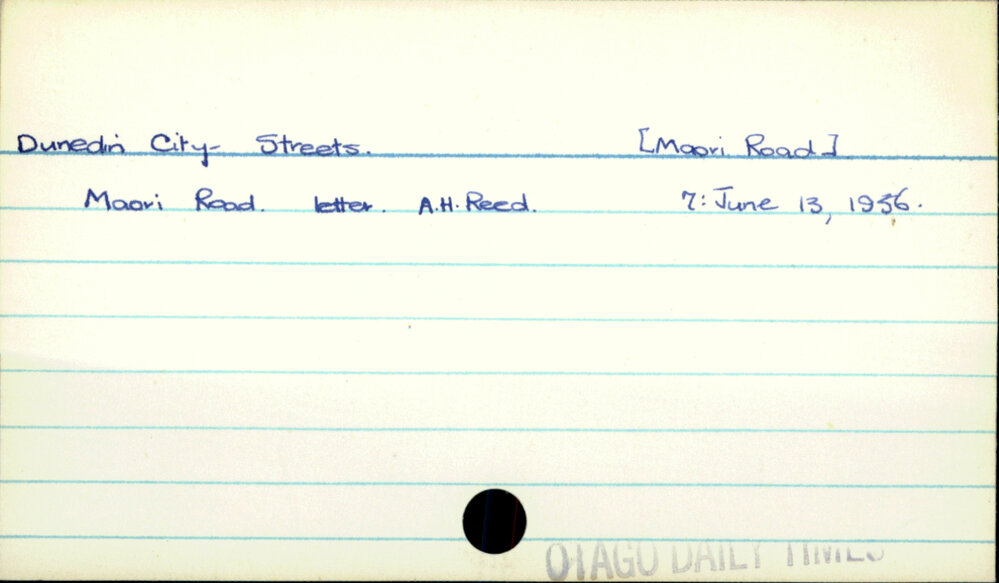 Dunedin City- Streets. [Maori Road]
Maori Road. letter. A.H. Reed. 7: June 13, 1956.
OTAGO DAILY TIMES